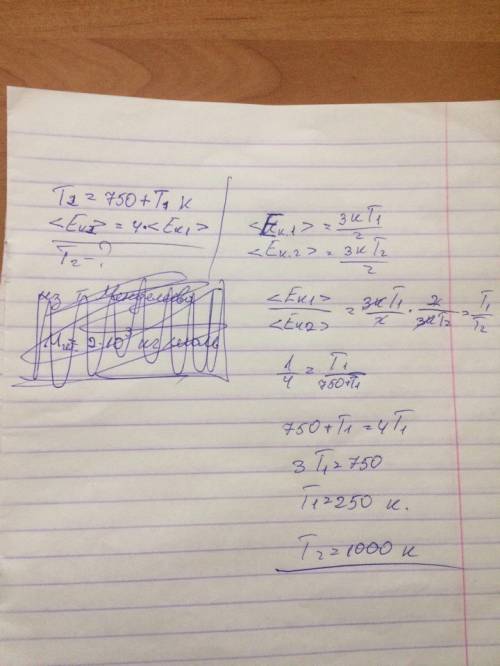 T₂ = 750 + T₁ К
<Eк2> = 4·<Eк1>
T₂ - ?
из т. Менделеева
<Eк.1> = 3кT₁/2
<Eк.2> = 3кT₂/2
<Eк1>/<Eк2> = 3кT₁/2 · 2/3кT₂ = T₁/T₂
1/4 = T₁/750+T₁
750 + T₁ = 4T₁
3T₁ = 750
T₁ = 250 К.
T₂ = 1000 К